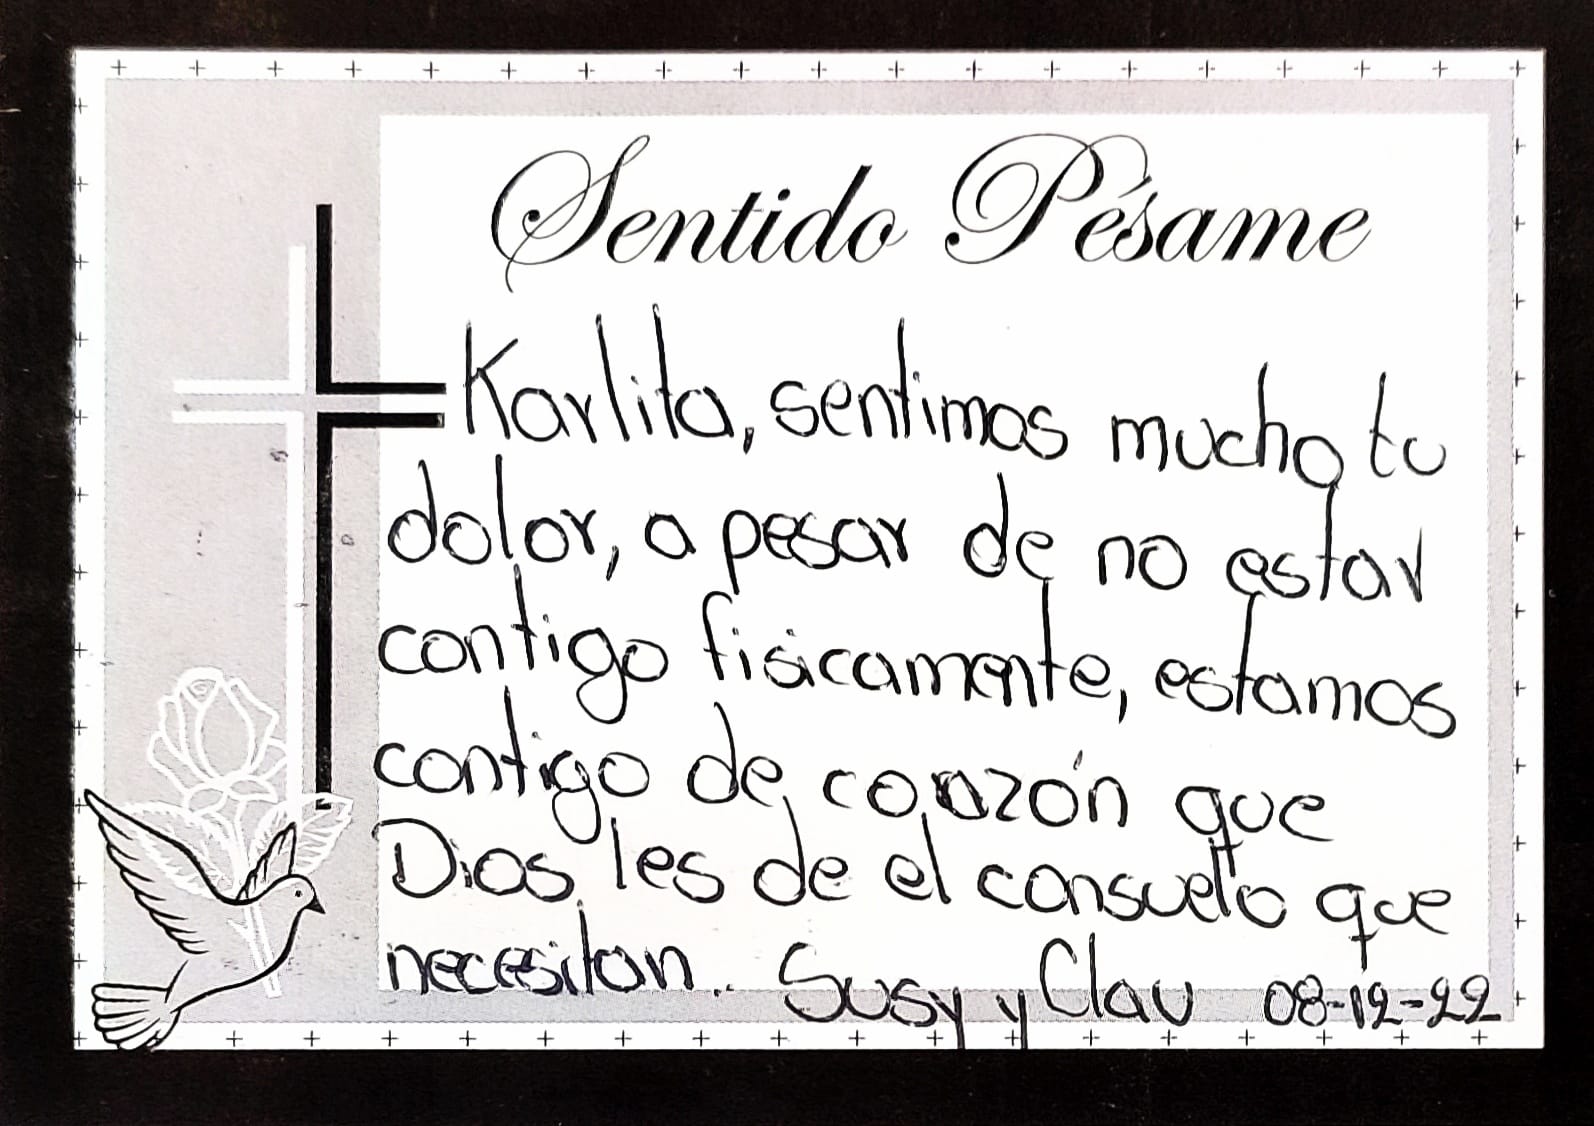 Sentido Pésame
Karlita, sentimos mucho tu
dolor, a pesar de no estar
contigo fisicamente, estamos
contigo de corazón que
Dios les de el consuelo que
necesitan.. Susy y Clau 08-12-22